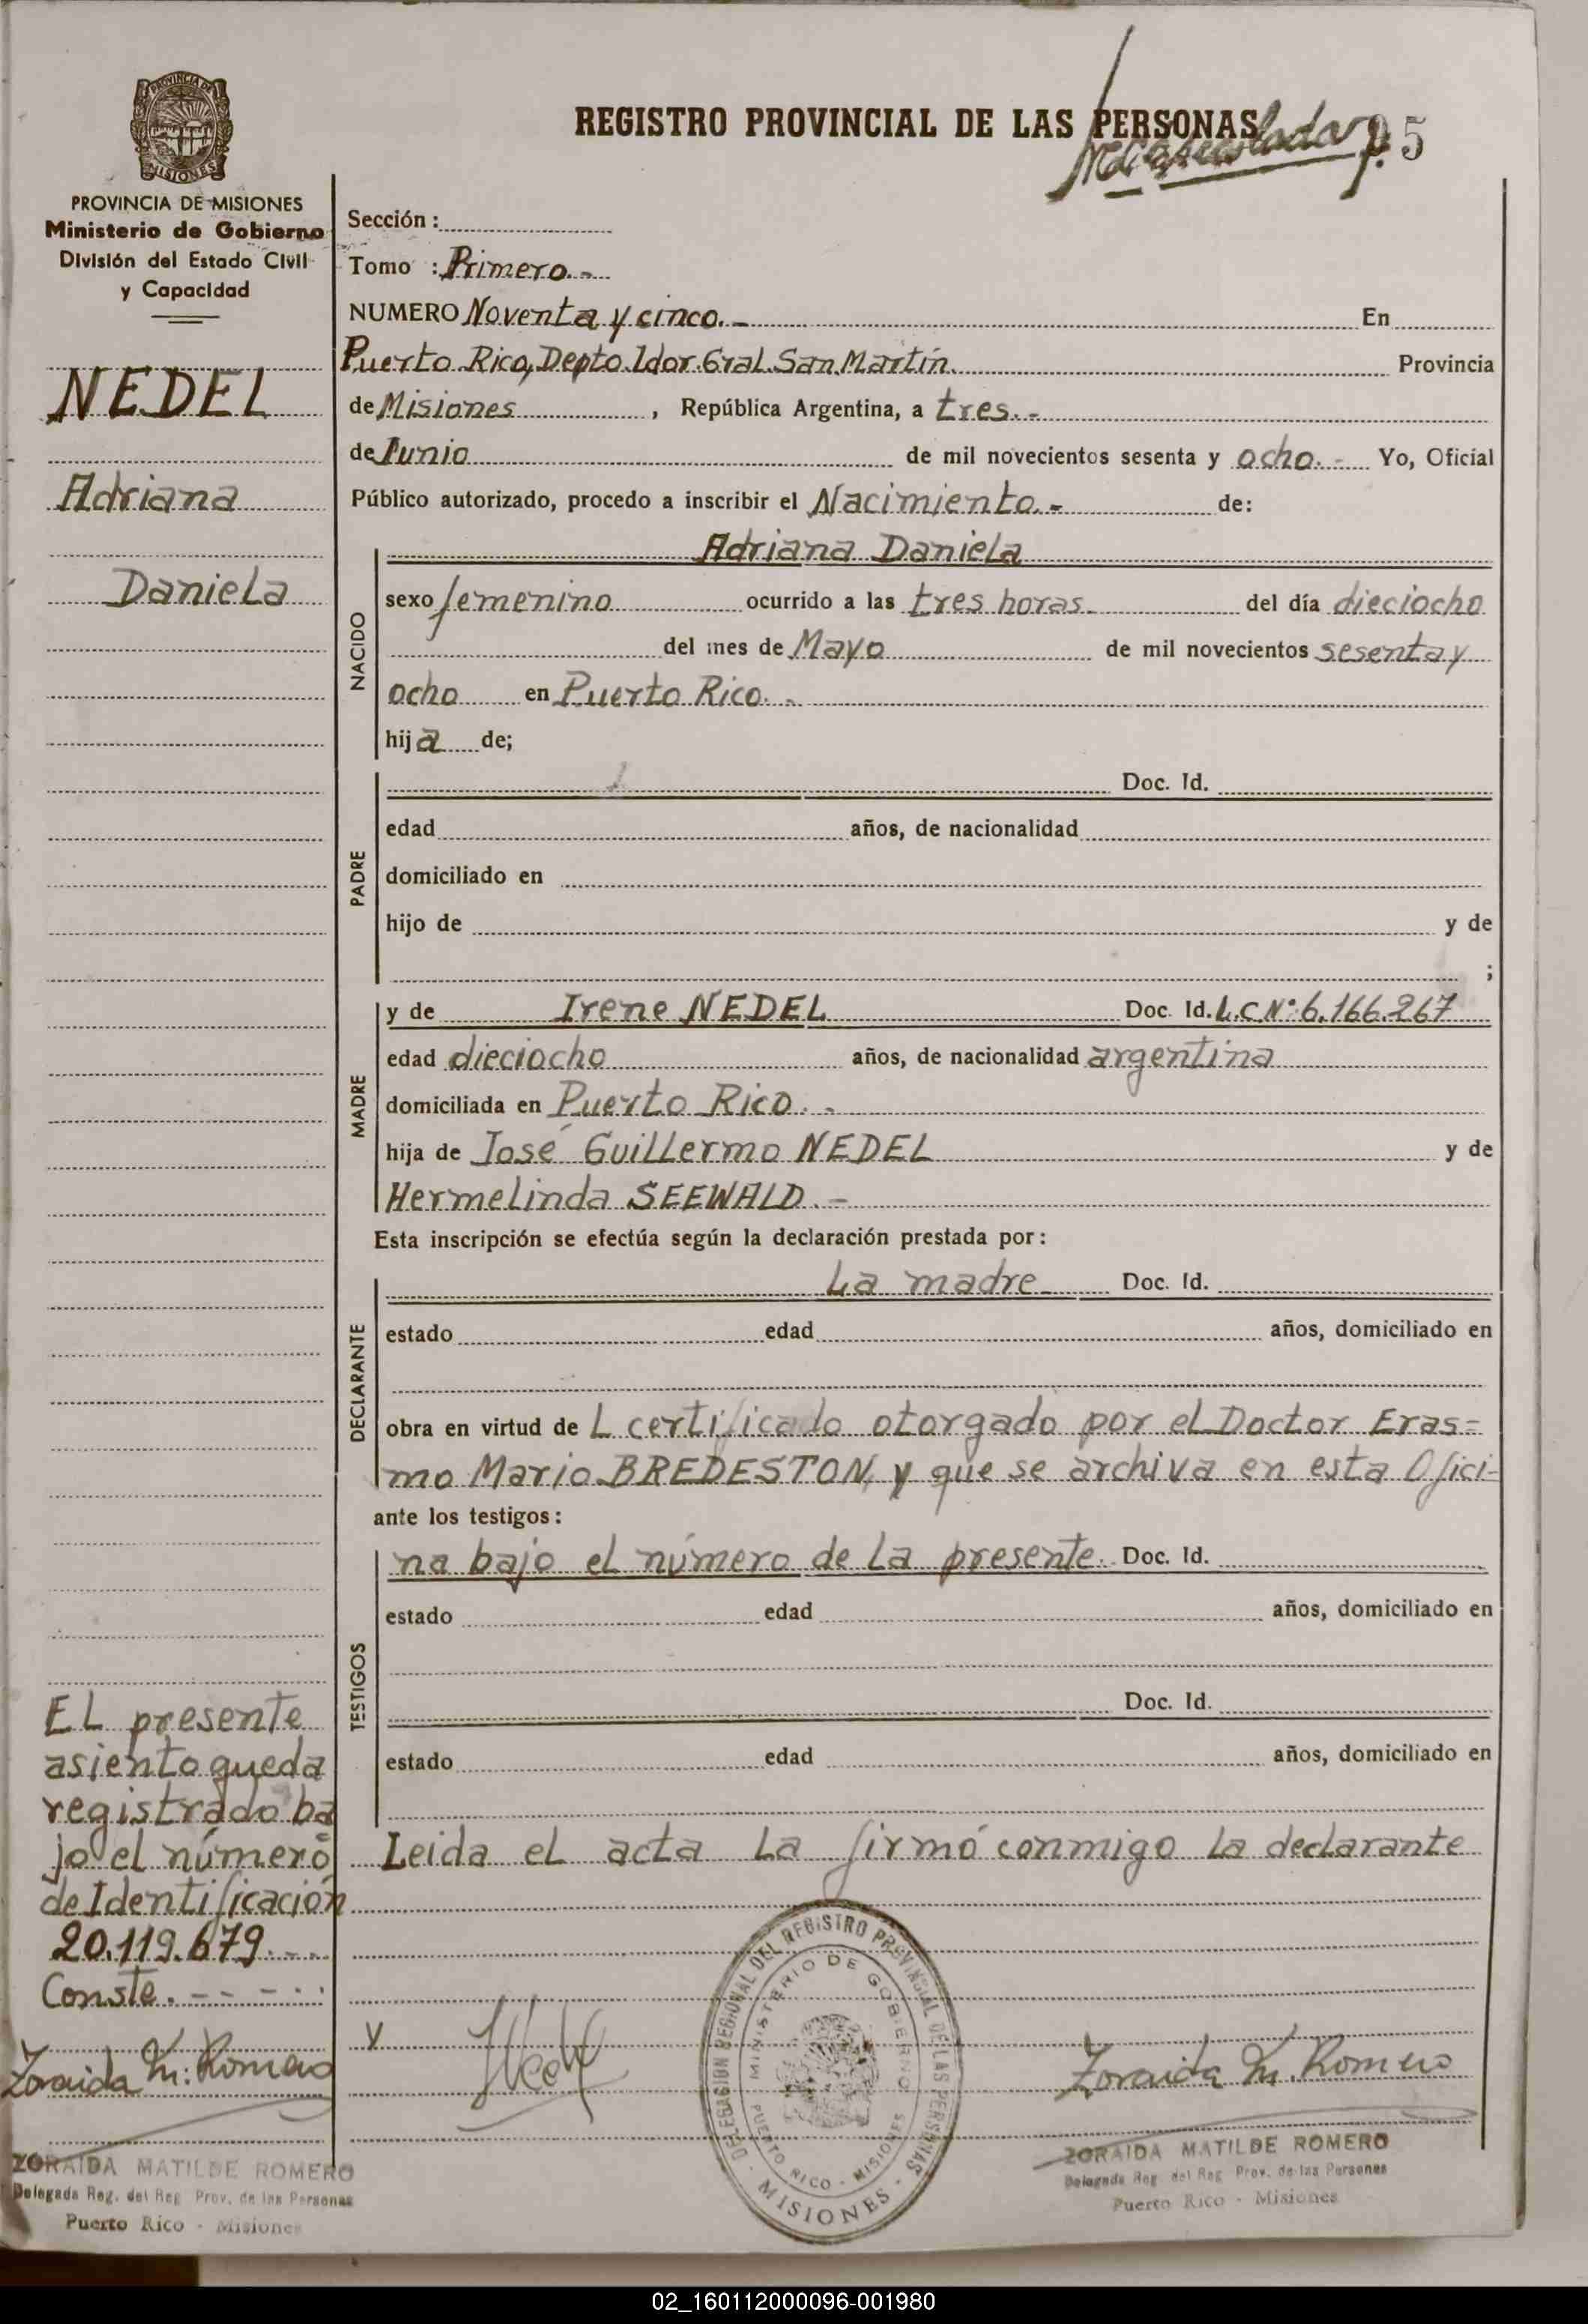 PROVINCIA DE
MISIONES
PROVINCIA DE MISIONES
Ministerio de Gobierno
División del Estado Civil
y Capacidad
NEDEL
Adriana
Daniela
EL presente
asiento queda
registrado ba
jo el número
de Identificación
20.119.679.--
Conste.-----
Zoraida M. Romero
ZORAIDA MATILDE ROMERO
Delegada Reg. del Reg. Prov. de las Personas
Puerto Rico - Misiones
REGISTRO PROVINCIAL DE LAS PERSONAS
95
Sección:
Tomo : Primero.-
NUMERO Noventa y cinco.- En
Puerto Rico, Depto. Ldor. Gral. San Martín. Provincia
de Misiones, República Argentina, a tres.-
de Junio de mil novecientos sesenta y ocho.- Yo, Oficial
Público autorizado, procedo a inscribir el Nacimiento.- de:
NACIDO
Adriana Daniela
sexo femenino ocurrido a las tres horas. del día dieciocho
del mes de Mayo de mil novecientos sesenta y
ocho en Puerto Rico.-
hija de;
PADRE
Doc. Id.
edad años, de nacionalidad
domiciliado en
hijo de y de
;
MADRE
y de Irene NEDEL Doc. Id. L.C.Nº: 6.166.267
edad dieciocho años, de nacionalidad argentina
domiciliada en Puerto Rico.-
hija de José Guillermo NEDEL y de
Hermelinda SEEWALD.-
Esta inscripción se efectúa según la declaración prestada por:
DECLARANTE
La madre Doc. Id.
estado edad años, domiciliado en
obra en virtud de L certificado otorgado por el Doctor Eras=
mo Mario BREDESTON, y que se archiva en esta Ofici-
ante los testigos:
TESTIGOS
na bajo el número de la presente. Doc. Id.
estado edad años, domiciliado en
Doc. Id.
estado edad años, domiciliado en
Leida el acta la firmó conmigo la declarante
y
DELEGACION REGIONAL DEL REGISTRO PROVINCIAL DE LAS PERSONAS
MINISTERIO DE GOBIERNO
PUERTO RICO - MISIONES
MISIONES
Zoraida M. Romero
ZORAIDA MATILDE ROMERO
Delegada Reg. del Reg. Prov. de las Personas
Puerto Rico - Misiones
02_160112000096-001980